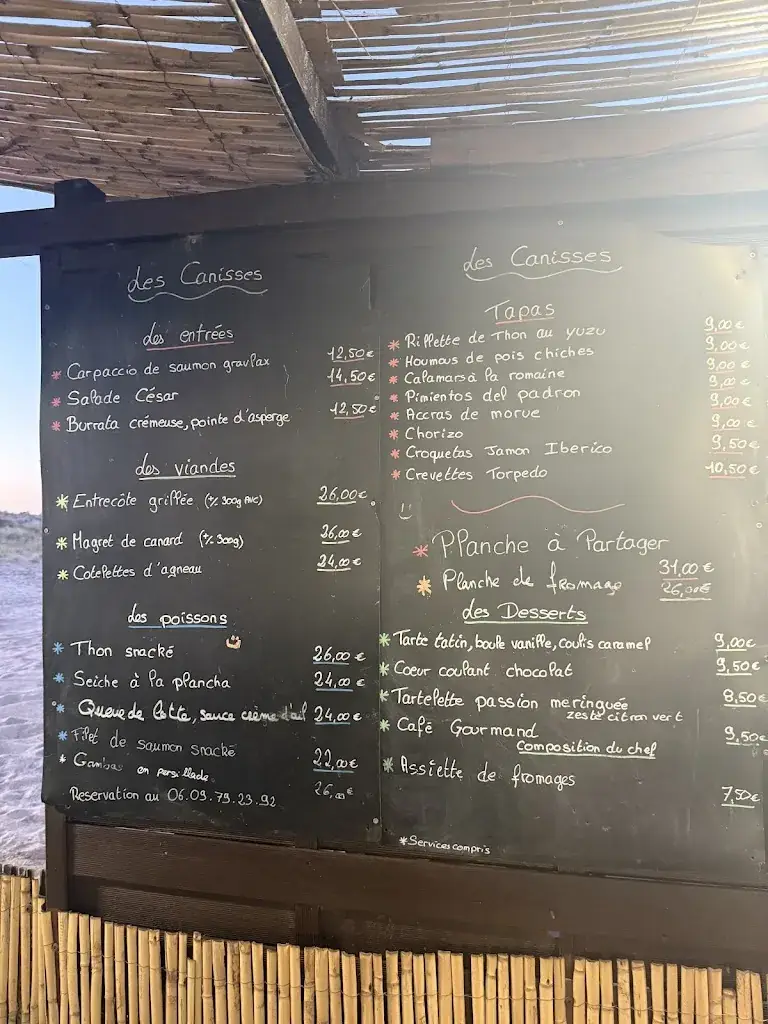 Les Canisses
les entrées
* Carpaccio de saumon gravlax 12,50€
* Salade César 14,50€
* Burrata crémeuse, pointe d'asperge 12,50€
les viandes
* Entrecôte grillée (+/- 300g AVC) 26,00€
* Magret de canard (+/- 300g) 26,00€
* Cotelettes d'agneau 24,00€
les poissons
* Thon snacké 26,00€
* Seiche à la plancha 24,00€
* Queue de lotte, sauce crème d'ail 24,00€
* Filet de saumon snacké 22,00€
* Gambas en persillade 26,00€
Reservation au 06.09.79.23.92
Les Canisses
Tapas
* Rillette de Thon au yuzu 9,00€
* Houmous de pois chiches 9,00€
* Calamars à la romaine 9,00€
* Pimientos del padron 9,00€
* Accras de morue 9,00€
* Chorizo 9,00€
* Croquetas Jamon Iberico 9,50€
* Crevettes Torpedo 10,50€
* Planche à Partager 31,00€
* Planche de fromage 26,00€
les Desserts
* Tarte tatin, boule vanille, coulis caramel 9,00€
* Coeur coulant chocolat 9,50€
* Tartelette passion meringuée 8,50€
zeste citron vert
* Café Gourmand 9,50€
Composition du chef
* Assiette de fromages 7,50€
* Services compris